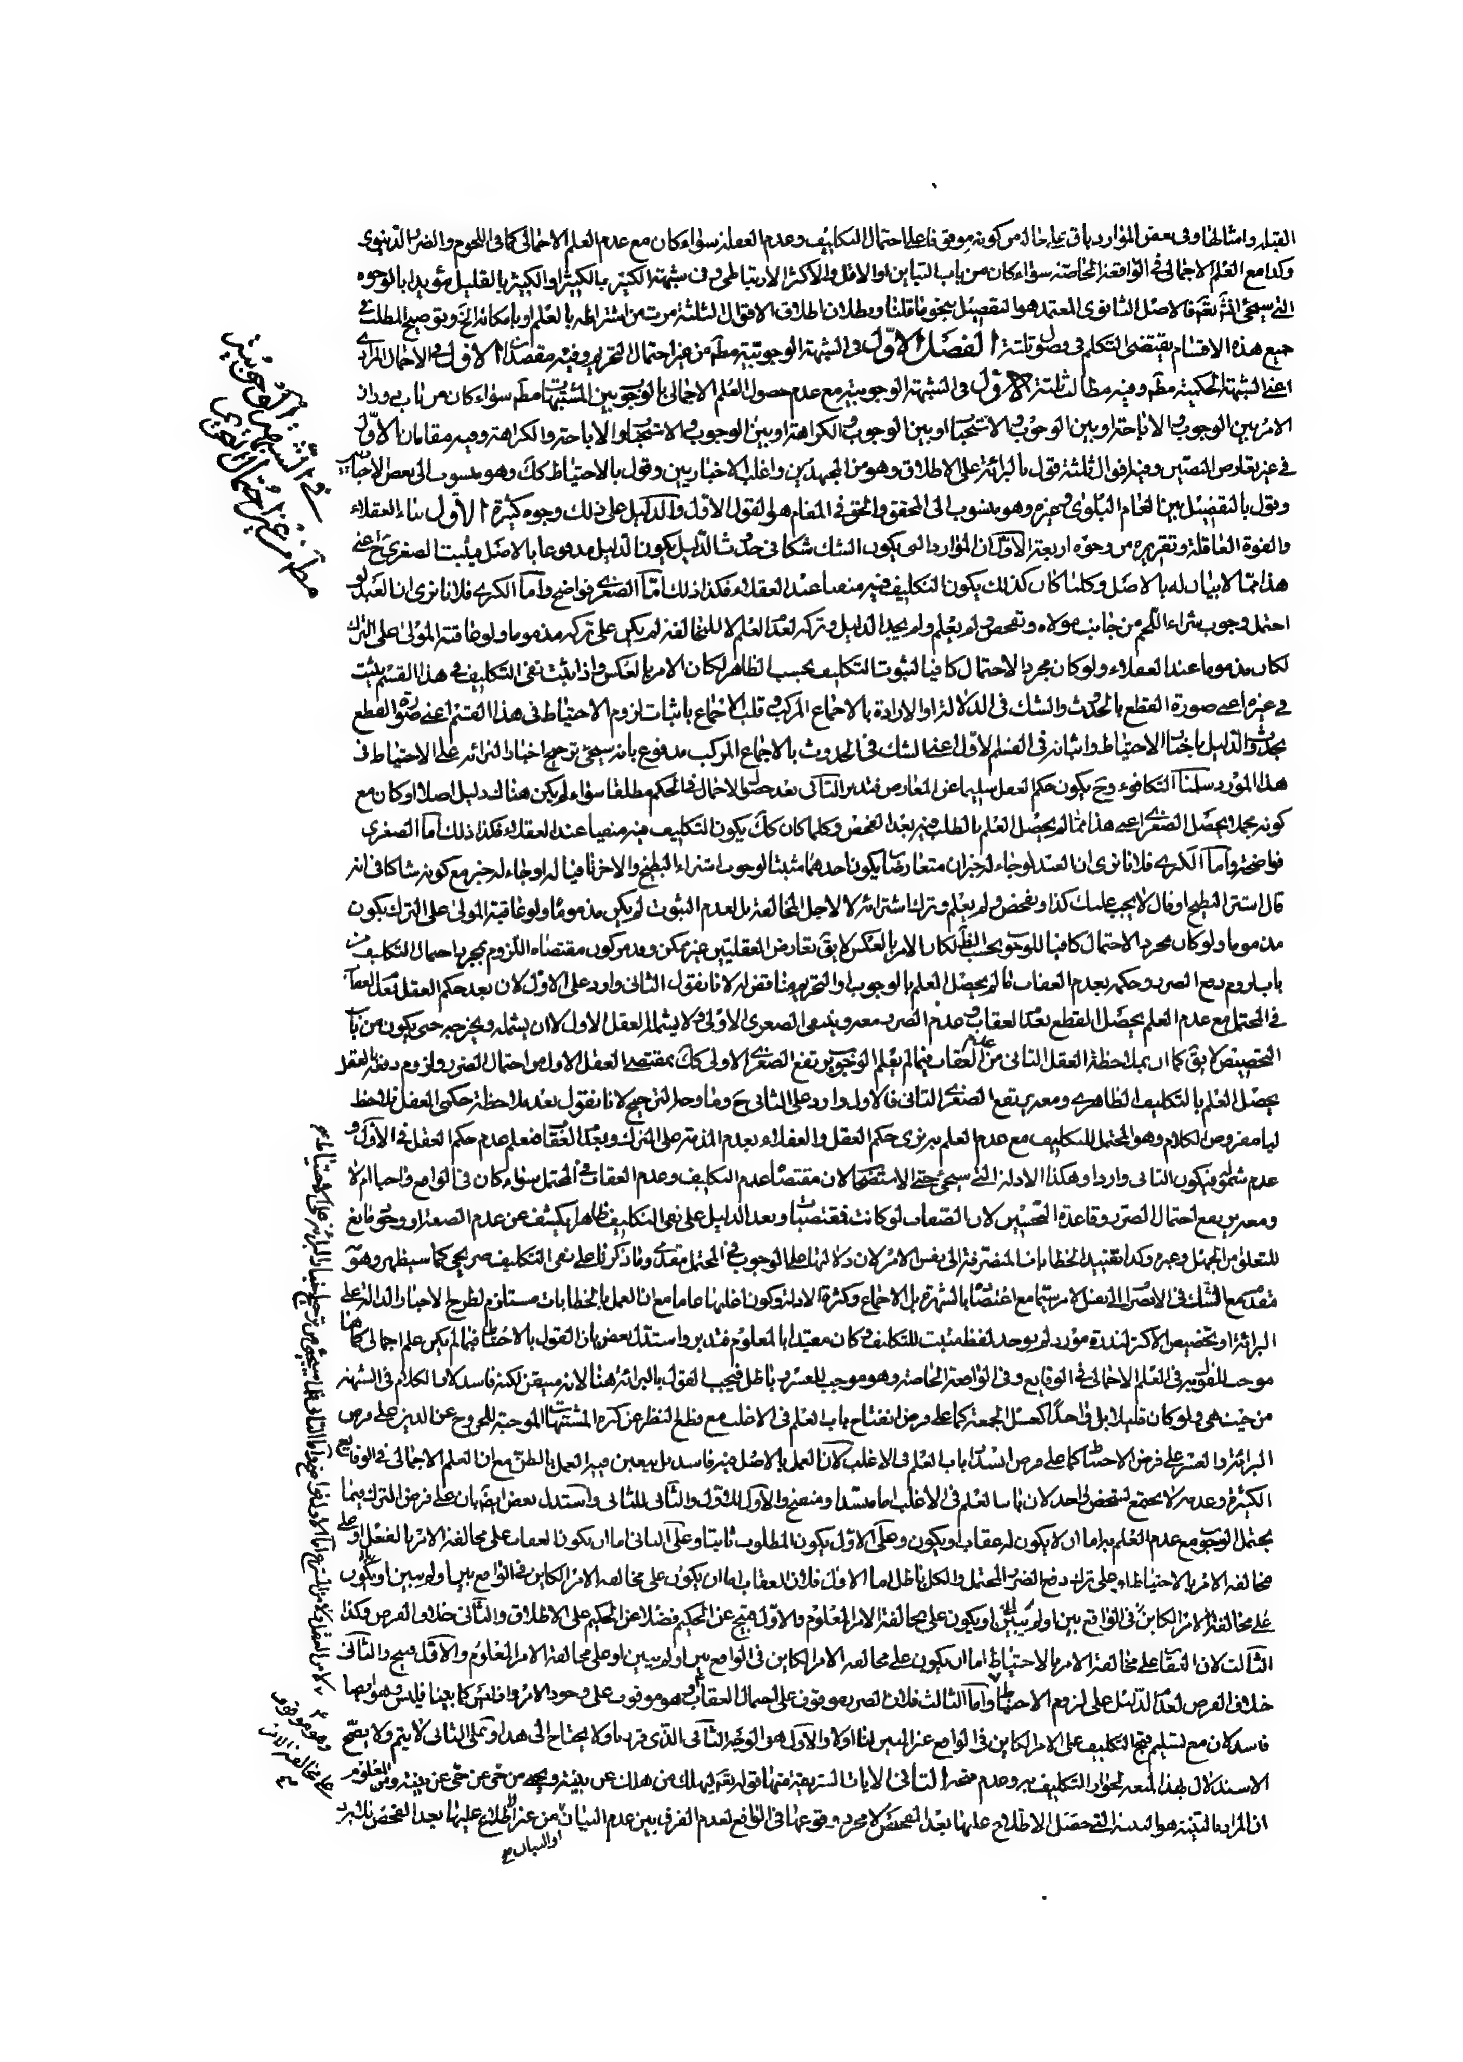 القبلة وامثالها وفى بعض الموارد باق بحاله من كونه موقوفا على احتمال التكليف وعدم الغفلة سواء كان مع عدم العلم الاجمالى كما فى اللحوم والضرر الدنيوى
وكذا مع العلم الاجمالى فى الواقعة الخاصة سواء كان من باب التباين او الاقل والاكثر الارتباطى وفى شبهة الكثير بالكثير او الكثير بالقليل مؤيدا بالوجوه
التى سيجئ فالاصل الثانوى المعتمد هو التفصيل بنحو ما قلنا وبطلان اطلاق الاقوال الثلثة مرت من اشتراطه بالعلم او بامكانه الخ وتوضيح المطلب فى
جميع هذه الاقسام يقتضى التكلم فى فصول ثلثة الفصل الاول فى الشبهة الوجوبية مطلقا من غير احتمال التحريم وفيه مقصدان الاول فى الاجمال المرادى
اعنى الشبهة الحكمية مطلقا وفيه مطالب ثلثة الاول فى الشبهة الوجوبية مع عدم حصول العلم الاجمالى بالوجوب بين المشتبهات مطلقا سواء كان من باب دوران
الامر بين الوجوب والاباحة او بين الوجوب والاستحباب او بين الوجوب والكراهة او بين الوجوب والاستحباب والاباحة والكراهة وفيه مقامان الاول
فى غير تعارض النصين وفيه اقوال ثلثة قول بالبرائة على الاطلاق وهو من المجتهدين واغلب الاخباريين وقول بالاحتياط كك وهو منسوب الى بعض الاخباريين
وقول بالتفصيل بين العام البلوى وغيره وهو منسوب الى المحقق والحق فى المقام هو القول الاول والدليل على ذلك وجوه كثيرة الاول بناء العقلاء
والقوة العاقلة وتقريره من وجوه اربعة الاول ان الموارد التى يكون الشك شكا فى حدوث الدليل يكون الدليل مدفوعا بالاصل فيثبت الصغرى ح اعنى
هذا مما لا بيان له بالاصل وكلما كان كذلك يكون التكليف فيه منفيا عند العقلاء فكذا ذلك اما الصغرى فواضح واما الكبرى فلانا نرى ان العبد لو
احتمل وجوب شراء اللحم من جانب مولاه وتفحص ولم يعلم ولم يجد الدليل وتركه لعدم العلم لا للمخالفة لم يكن على تركه مذموما ولو عاقبه المولى على الترك
لكان مذموما عند العقلاء ولو كان مجرد الاحتمال كافيا لثبوت التكليف بحسب الظاهر لكان الامر بالعكس واذا ثبت نفى التكليف فى هذا القسم يثبت
فى غيره اعنى صورة القطع بالحدوث والشك فى الدلالة او الارادة بالاجماع المركب وقلب الاجماع باثبات لزوم الاحتياط فى هذا القسم اعنى صورة القطع
بحدوث الدليل باخبار الاحتياط واثباته فى القسم الاول اعنى الشك فى الحدوث بالاجماع المركب مدفوع بانه سيجئ ترجيح اخبار البرائة على الاحتياط فى
هذا المورد سلمنا التكافوء وح يكون حكم العقل سليما عن المعارض فتدبر الثانى بعد حصول الاحتمال فى الحكم مطلقا سواء لم يكن هناك دليل اصلا او كان مع
كونه مجملا يحصل الصغرى اعنى هذا مما لم يحصل العلم بالطلب فيه بعد الفحص وكلما كان كك يكون التكليف فيه منفيا عند العقلاء فكذا ذلك اما الصغرى
فواضحة واما الكبرى فلانا نرى ان العبد لو جاء له خبران متعارضان يكون احدهما مثبتا لوجوب اشتراء البطيخ والاخر نافيا له او جاء له خبر مع كونه شاكا فى انه
قال اشتر البطيخ او قال لا يجب عليك كذا وتفحص ولم يعلم وترك اشترائه لا لاجل المخالفة بل لعدم الثبوت لم يكن مذموما ولو عاقبه المولى على الترك يكون
مذموما ولو كان مجرد الاحتمال كافيا للوجوب بحسب الظاهر لكان الامر بالعكس لا يق تعارض العقليين غير ممكن وقد مر كون مقتضاه اللزوم بمجرد احتمال التكليف من
باب لزوم دفع الضرر وحكمه بعدم العقاب ما لم يحصل العلم بالوجوب او التحريم مناقض له لانا نقول الثانى وارد على الاول لان بعد حكم العقل بعدم العقاب
فى المحتمل مع عدم العلم يحصل القطع بعدم العقاب وعدم الضرر معه وينتفى الصغرى الاولى فلا يشمله العقل الاول لا ان يشمله ويخرجه حتى يكون من باب
التخصيص لا يق كما ان بملاحظة العقل الثانى من عدم العقاب فيما لم يعلم الوجوب يرتفع الصغرى الاولى كك بمقتضى العقل الاول من احتمال الضرر ولزوم دفعه بالعقل
يحصل العلم بالتكليف الظاهرى ومعه يرتفع الصغرى الثانى فالاول وارد على الثانى ح وما وجه الترجيح لانا نقول بعد ملاحظة حكمى العقل بلاحظ
لبا مفروض الكلام وهو المحتمل للتكليف مع عدم العلم به نرى حكم العقل والعقلاء بعدم المذمة على الترك وبعدم العقاب فنعلم عدم حكم العقل فى الاول و
عدم شموله فيكون الثانى واردا وهكذا الادلة التى سيجئ حتى الاستصحاب لان مقتضاه عدم التكليف وعدم العقاب فى المحتمل سواء كان فى الواقع واجبا ام لا
ومعه يرتفع احتمال الضرر
للتعلق من الجهل وغيره وكذا تقييد الخطابات المنصرفة الى نفس الامر لان دلالتها على الوجوب فى المحتمل مقدمى وما ذكرنا على نفى التكليف صريحى كما سيظهر وهو
مقدم مع الشك فى الانصراف الى نفس الامر سيما مع اعتضاده بالشهرة بل الاجماع وكثرة الادلة وكون اغلبها عاما مع ان العمل بالخطابات مستلزم لطرح الاخبار الدالة على
البرائة او تخصيص الاكثر لندرة مورد لم يوجد لفظ مثبت للتكليف وكان مقيدا بالمعلوم فتدبر واستدل بعض بان القول بالاحتياط فيما لم يكن علم اجمالى كما هنا
موجب للقول به فى العلم الاجمالى فى الوقايع وفى الواقعة الخاصة وهو موجب للعسر وباطل فيجب القول بالبرائة هنا لانه متيقن لكنه فاسد لان الكلام فى الشبهة
من حيث هى ولو كان قليلا بل فى احدا كغسل الجمعة كما على فرض انفتاح باب العلم فى الاغلب مع قطع النظر عن كثرة المشتبهات الموجبة للخروج عن الدين على فرض
البرائة والعسر على فرض الاحتياط كما على فرض انسداد باب العلم فى الاغلب لان العمل بالاصل فيه فاسد بل يتعين فيه العمل بالظن مع ان العلم الاجمالى فى الوقايع
الكثيرة وعدمه لا يجتمع لشخص واحد لان باب العلم فى الاغلب اما منسد او منفتح والاول للاول والثانى للثانى واستدل بعض ايضا بان على فرض الترك فيما
يحتمل الوجوب مع عدم العلم به اما ان لا يكون له عقاب او يكون وعلى الاول يكون المطلوب ثابتا وعلى الثانى اما ان يكون العقاب على مخالفة الامر بالفعل او على
مخالفة الامر بالاحتياط او على ترك دفع الضرر المحتمل والكل باطل اما الاول فلان العقاب اما ان يكون على مخالفة الامر الكاين فى الواقع بين او لم يبين او يكون
على مخالفة الامر الكاين فى الواقع بين او لم يبين او يكون على مخالفة الامر المعلوم والاول قبيح عن الحكيم فضلا عن الحكيم على الاطلاق والثانى خلاف الفرض وكذا
الثالث لان العقاب على مخالفة الامر بالاحتياط اما ان يكون على مخالفة الامر الكاين فى الواقع بين او لم يبين او على مخالفة الامر المعلوم والاول قبيح والثانى
خلاف الفرض لعدم الدليل على لزوم الاحتياط واما الثالث فلان الضرر موقوف على احتمال العقاب وهو موقوف على وجود الامر واقعا كاينا فليس وهو ايضا
فاسد لان مع تسليم قبح التكليف على الامر الكاين فى الواقع غير المبين لنا اولا والاول هو الوجه الثانى الذى قررناه ولا يحتاج الى هذا وعلى الثانى لا يتم ولا يصح
الاستدلال بهذا لجواز التكليف به وعدم قبحه الثانى الايات الشريفة منها قوله تعالى ليهلك من هلك عن بينة ويحيى من حى عن بينة ومن المعلوم
ان المراد بالبينة هو البينة التى حصل الاطلاع عليها بعد الفحص لا مجرد وقوعها فى الواقع لعدم الفرق بين عدم البيان من غير اطلاع عليها بعد الفحص
او البيان
فى الشبهة الوجوبية
مطلقا من غير احتمال التحريم
وهو موقوف
على مخالفة الامر